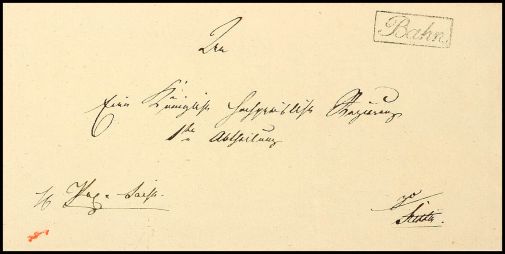 Bahn.
An
Eine Königliche Hochpreisliche Regierung
1te Abtheilung
zu
Stettin